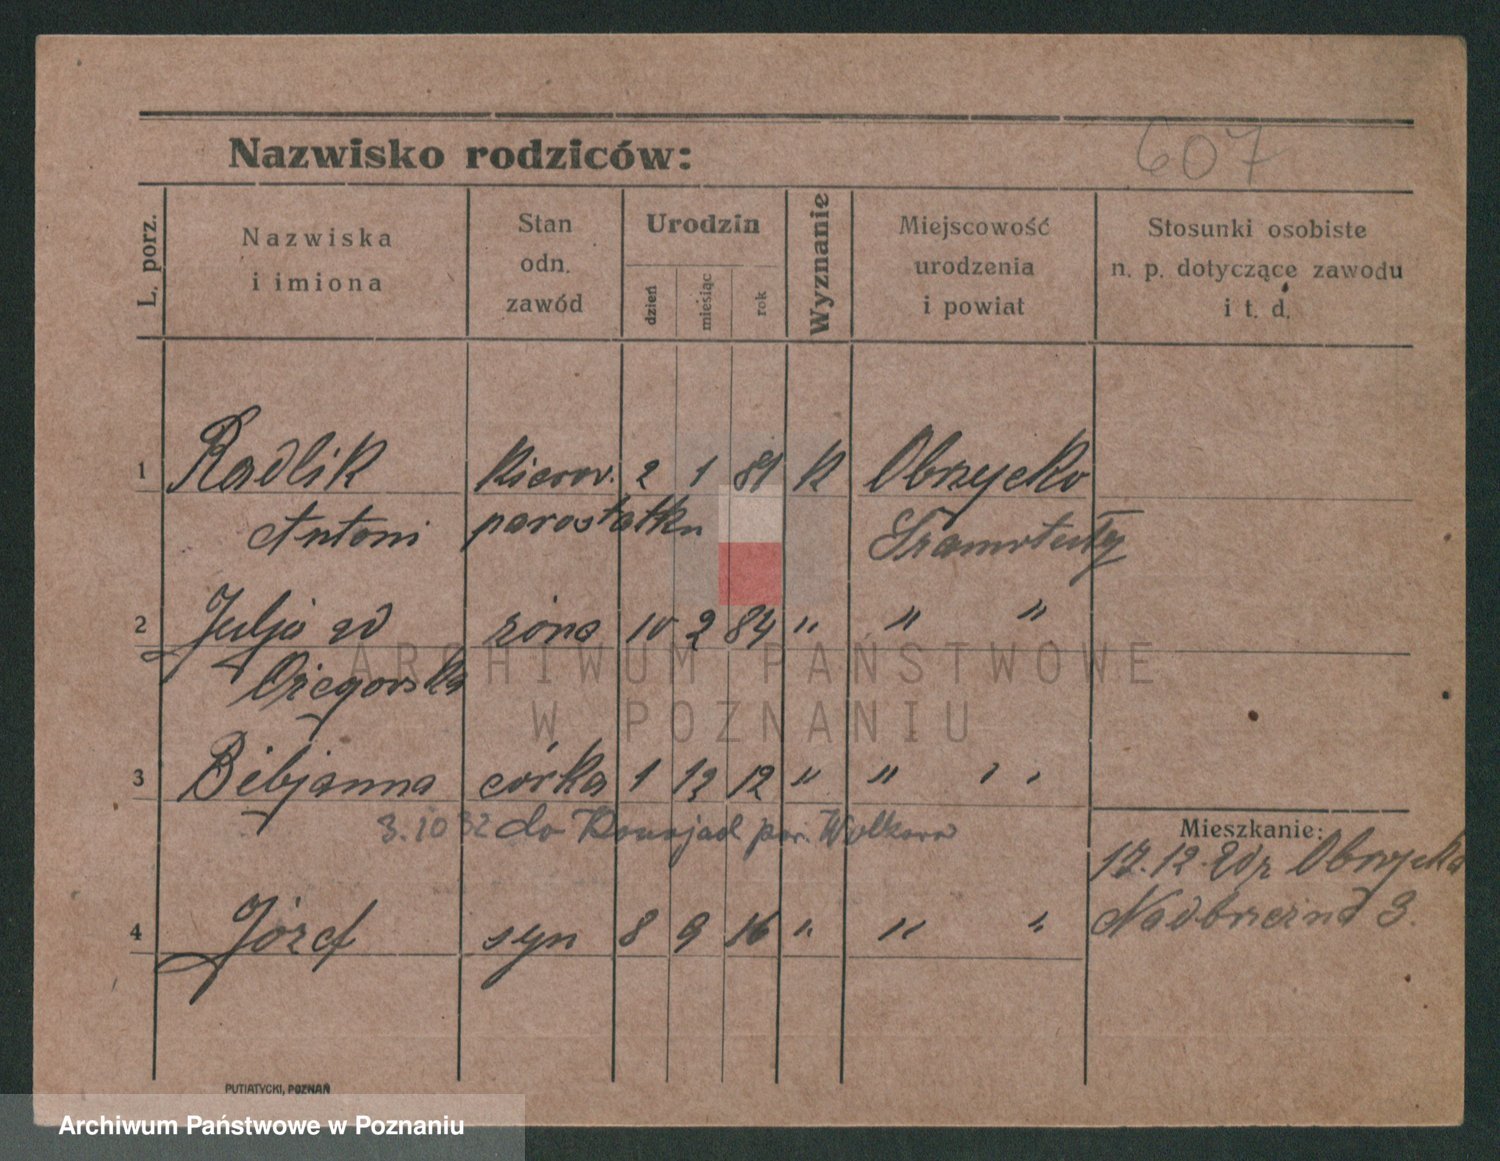 607
Nazwisko rodziców:
L. porz.
Nazwiska
i imiona
Stan
odn.
zawód
Urodzin
dzień
miesiąc
rok
Wyznanie
Miejscowość
urodzenia
i powiat
Stosunki osobiste
n. p. dotyczące zawodu
i t. d.
1 Radlik kierow. 2 1 81 K Obrzycko
Antoni parostatku Szamotuły
2 Julja zd żona 10 2 84 " " "
3 Bibjanna córka 1 12 12 " " " "
3.10 32 do Konojad pow.
Mieszkanie:
17.12.20 z Obrzycka
Nadbrzeżna 3.
4 Józef syn 8 9 16 " " "
PUTIATYCKI, POZNAŃ
ARCHIWUM PAŃSTWOWE
W POZNANIU
Archiwum Państwowe w Poznaniu